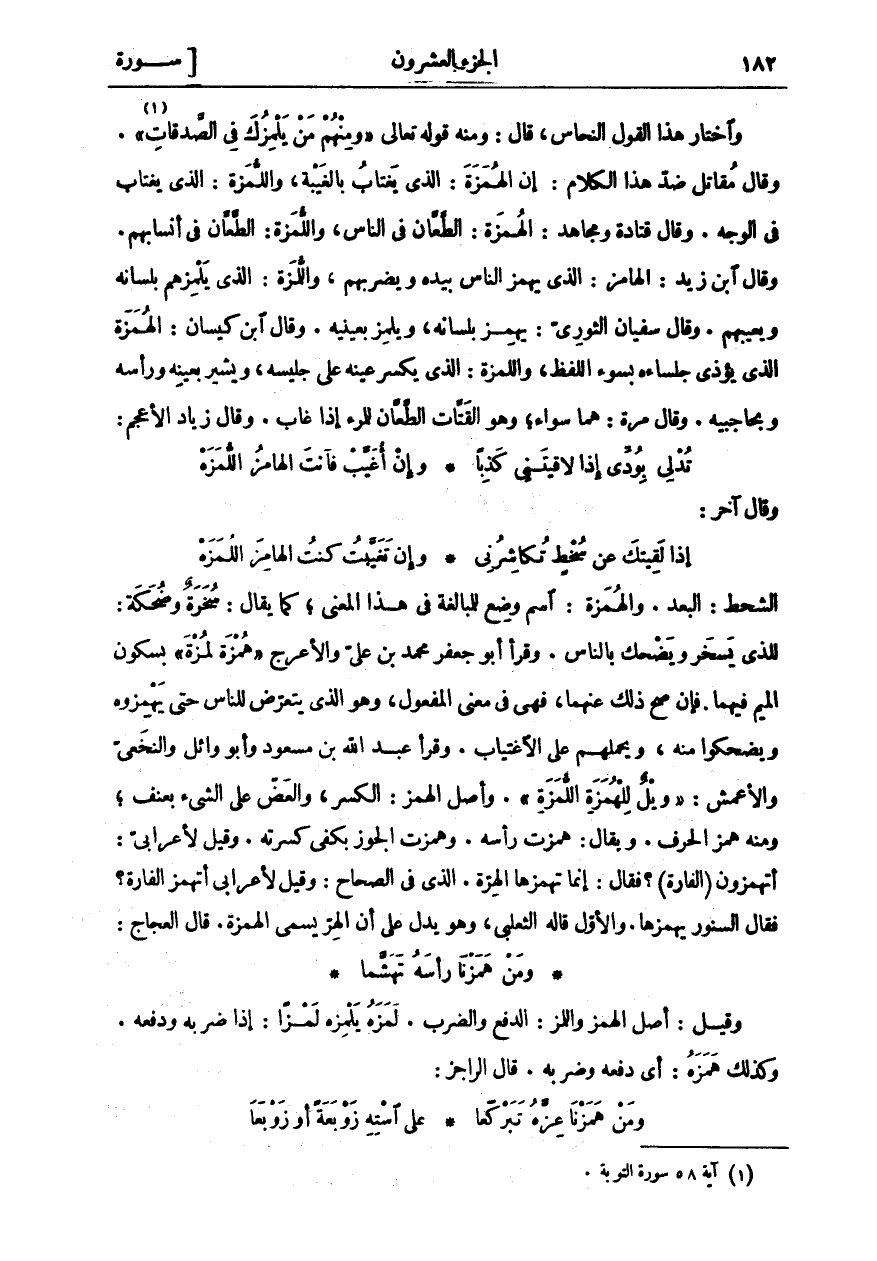 ١٨٢ الجزء العشرون [ سـورة
وٱختار هذا القول النحاس، قال : ومنه قوله تعالى «ومِنْهُمْ مَنْ يَلْمِزُكَ فِى الصَّدقاتِ» (١) .
وقال مُقاتل ضدّ هذا الكلام : إن الهُمَزَة : الذى يَغتابُ بالغَيْبة، واللُّمَزة : الذى يغتاب
فى الوجه . وقال قتادة ومجاهد : الهُمزة : الطَّعَّان فى الناس، واللُّمزة: الطَّعَّان فى أنسابهم.
وقال ٱبن زيد : الهامز : الذى يهمز الناس بيده ويضربهم ، واللُّمَزة : الذى يَلْمِزهم بلسانه
ويعيبهم . وقال سفيان الثورىّ : يهمـز بلسانه، ويلمز بعينيه . وقال ٱبن كيسان : الهُمَزة
الذى يؤذى جلساءه بسوء اللفظ، واللمزة : الذى يكسر عينه على جليسه، ويشير بعينه ورأسه
وبحاجبيه . وقال مرة : هما سواء؛ وهو القَتَّات الطَّعَّان للرء إذا غاب . وقال زياد الأعجم:
تُدْلِى بِوُدِّى إذا لاقيتَـنِى كَذِبًا * وإنْ أُغَيَّبْ فٱنتَ الهامزُ اللُّمَزَهْ
وقال آخر :
إذا لَقِيتكَ عن سُخْطٍ تُـكاشِرُنِى * وإن تَغَيَّبْتُ كنتُ الهامِزَ اللُمَزَهْ
الشحط : البعد . والهُمَزة : ٱسم وضِع للبالغة فى هـذا المعنى ؛ كما يقال : سُخَرةٌ وضُحَكَة:
للذى يَسخَر ويَضْحك بالناس . وقرأ أبو جعفر محمد بن علىّ والأعرج «هُمْزَة لُمْزَة» بسكون
الميم فيهما. فإن صح ذلك عنهما، فهى فى معنى المفعول، وهو الذى يتعرّض للناس حتى يَهْمِزوه
ويضحكوا منه ، ويحملهـم على الٱغتياب . وقرأ عبـد الله بن مسعود وأبو وائل والنخَعىّ
والأعمش : « ويْلٌ لِلْهُمَزَةِ اللُّمَزَةِ » . وأصل الهمز : الكسر ، والعَضّ على الشىء بعنف ؛
ومنه همز الحرف . ويقال: همزت رأسه . وهمزت الجوز بكفى كسرته . وقيل لأعرابىّ :
أتهمزون (الفارة) ؟ فقال : إنما تهمزها الهرة . الذى فى الصحاح : وقيل لأعرابى أتهمز الفارة؟
فقال السنور يهمزها. والأوّل قاله الثعلبي، وهو يدل على أن الهرّ يسمى الهمزة. قال العجاج :
* ومَنْ هَمَزْنَا رأسَهُ تَهَشَّما *
وقيـل : أصل الهمز واللز : الدفع والضرب . لَمَزَهُ يَلْمِزه لَمْـزًا : إذا ضربه ودفعه .
وكذلك هَمَزَهُ : أى دفعه وضربه . قال الراجز :
ومَنْ هَمَزْنَا عِزَّهُ تَبَرْكَعَا * على ٱسْتِهِ زَوْبَعَةً أو زَوْبَعَا
(١) آية ٥٨ سورة التوبة .